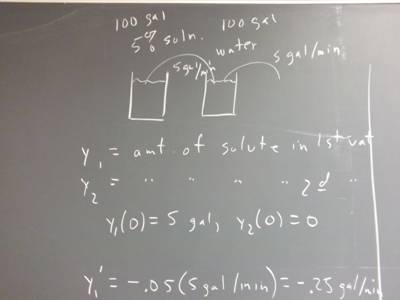 100 gal 100 gal
5% soln. water
5 gal/min 5 gal/min
y₁ = amt. of solute in 1st vat
y₂ = " " " " 2d "
y₁(0) = 5 gal, y₂(0) = 0
y₁' = -.05(5 gal/min) = -.25 gal/min